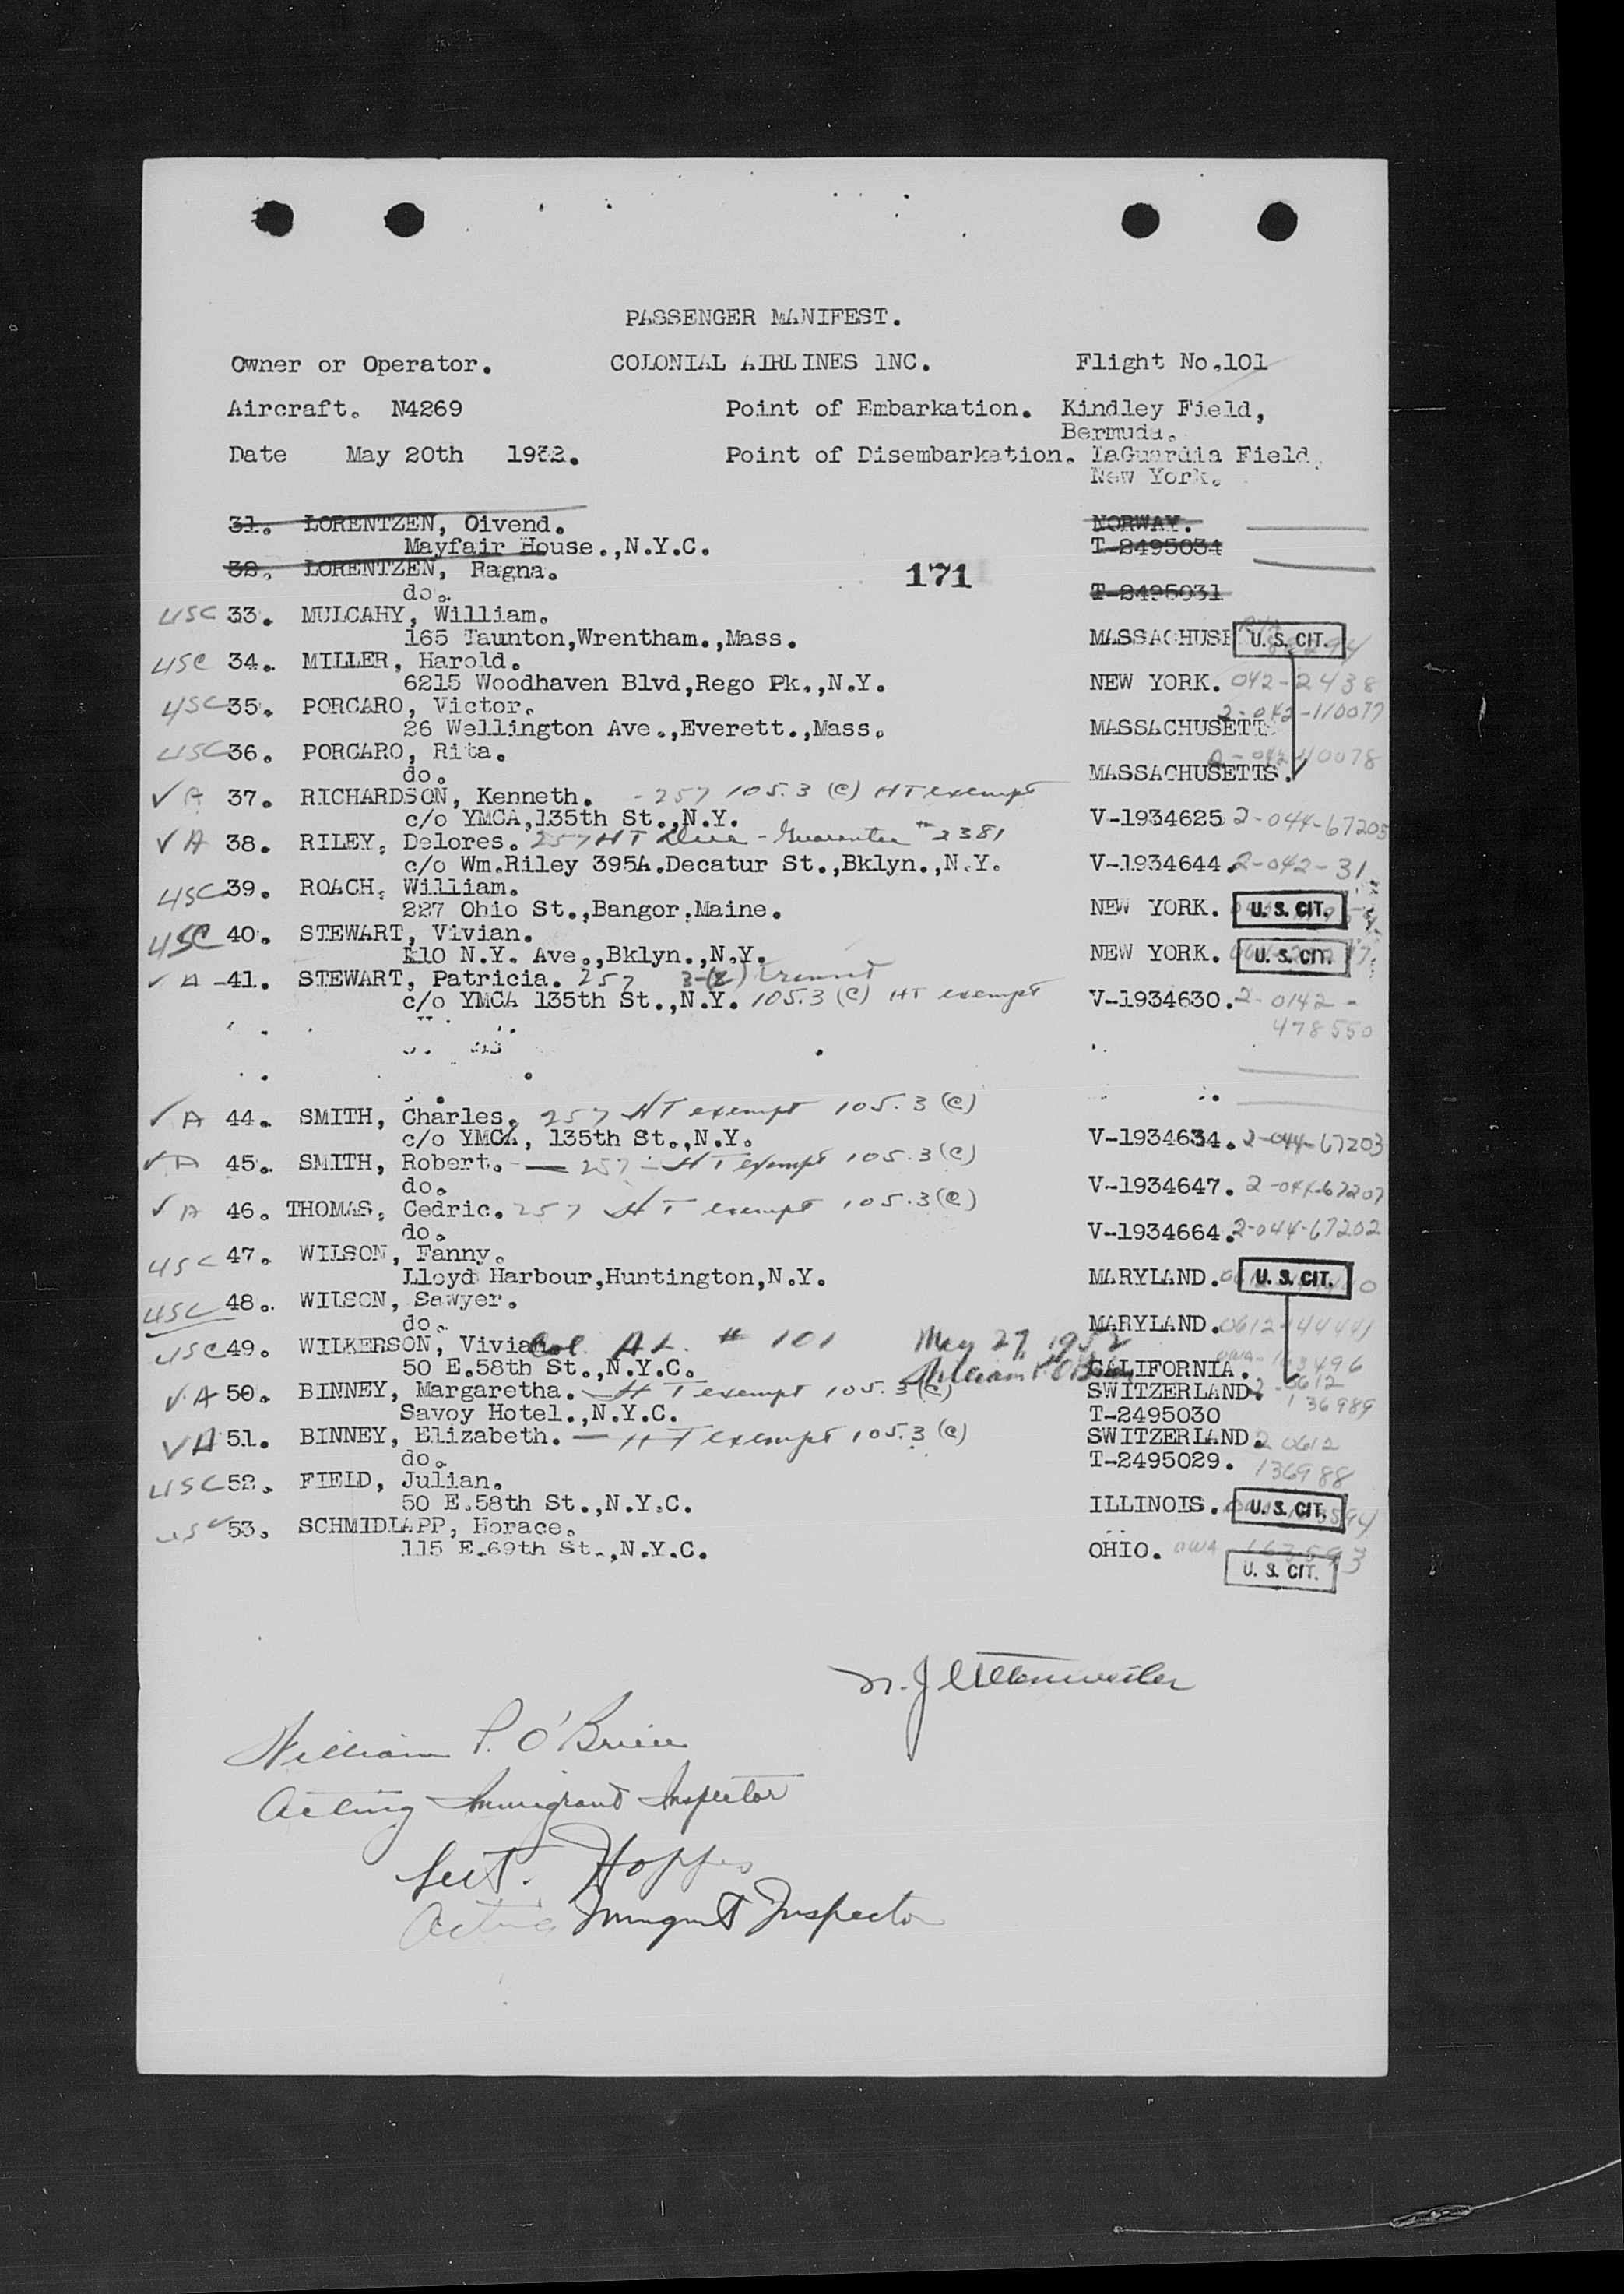 PASSENGER MANIFEST.
Owner or Operator. COLONIAL AIRLINES INC. Flight No.101
Aircraft. N4269 Point of Embarkation. Kindley Field,
Bermuda.
Date May 20th Point of Disembarkation. LaGuardia Field,
New York.
31. LORENTZEN, Oivend. NORWAY.
Mayfair House.,N.Y.C. T-2495034
32. LORENTZEN, Ragna. 171
do. T-2495031
USC 33. MULCAHY, William.
165 Taunton,Wrentham.,Mass. MASSACHUSE U. S. CIT.
USC 34. MILLER, Harold.
6215 Woodhaven Blvd,Rego Pk.,N.Y. NEW YORK. 042-2438
USC 35. PORCARO, Victor. 2-042-110077
26 Wellington Ave.,Everett.,Mass. MASSACHUSETTS
USC 36. PORCARO, Rita.
do. MASSACHUSETTS.
✓ A 37. RICHARDSON, Kenneth. - 257 105.3 (c) HT exempt
c/o YMCA,135th St.,N.Y. V-1934625 2-044-67205
✓ A 38. RILEY, Delores. 257 HT Due - Guarantee 2381
c/o Wm.Riley 395A.Decatur St.,Bklyn.,N.Y. V-1934644. 2-042-31
USC 39. ROACH, William.
227 Ohio St.,Bangor,Maine. NEW YORK. U. S. CIT.
USC 40. STEWART, Vivian.
N.Y. Ave.,Bklyn.,N.Y. NEW YORK. U. S. CIT.
✓ A -41. STEWART, Patricia. 257
c/o YMCA 135th St.,N.Y. 105.3 (c) HT exempt V-1934630. 2-0142-
478550
✓ A 44. SMITH, Charles. 257 HT exempt 105.3 (c)
c/o YMCA, 135th St.,N.Y. V-1934634. 2-044-67203
✓ A 45. SMITH, Robert. - 257 - HT exempt 105.3 (c)
do. V-1934647. 2-044-67207
✓ A 46. THOMAS, Cedric. 257 HT exempt 105.3 (c)
do. V-1934664. 2-044-67202
USC 47. WILSON, Fanny.
Lloyd Harbour,Huntington,N.Y. MARYLAND. U. S. CIT.
USC 48. WILSON, Sawyer.
do. MARYLAND. 0612-144441
USC 49. WILKERSON, Vivian Col AL # 101 May 27, 1952
50 E.58th St.,N.Y.C. William P O'Brien CALIFORNIA.
✓ A 50. BINNEY, Margaretha. - HT exempt 105.3 (c) SWITZERLAND. 2-0612
Savoy Hotel.,N.Y.C. T-2495030 136989
✓ A 51. BINNEY, Elizabeth. - HT exempt 105.3 (c) SWITZERLAND. 2 0612
do. T-2495029. 136988
USC 52. FIELD, Julian.
50 E.58th St.,N.Y.C. ILLINOIS. U. S. CIT.
USC 53. SCHMIDLAPP, Horace.
115 E.69th St.,N.Y.C. OHIO.
U. S. CIT.
William P. O'Brien
Acting Immigrant Inspector
Hoppes
Acting Immigrant Inspector